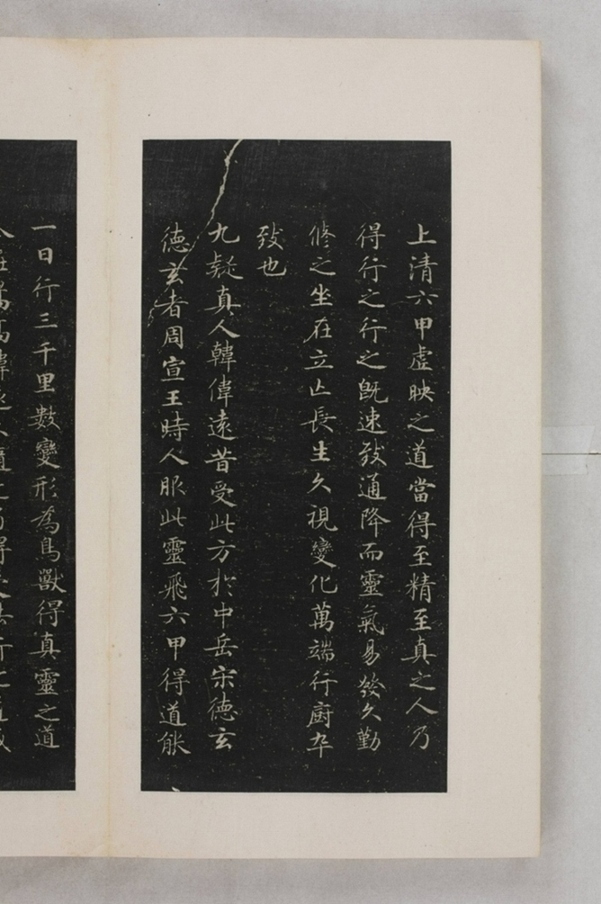 上清六甲虛映之道當得至精至真之人乃
得行之行之旣速致通降而靈氣易發久勤
脩之坐在立亾長生久視變化萬端行廚卒
致也
九疑真人韓偉遠昔受此方於中岳宋德玄
德玄者周宣王時人服此靈飛六甲得道能
一日行三千里數變形為鳥獸得真靈之道